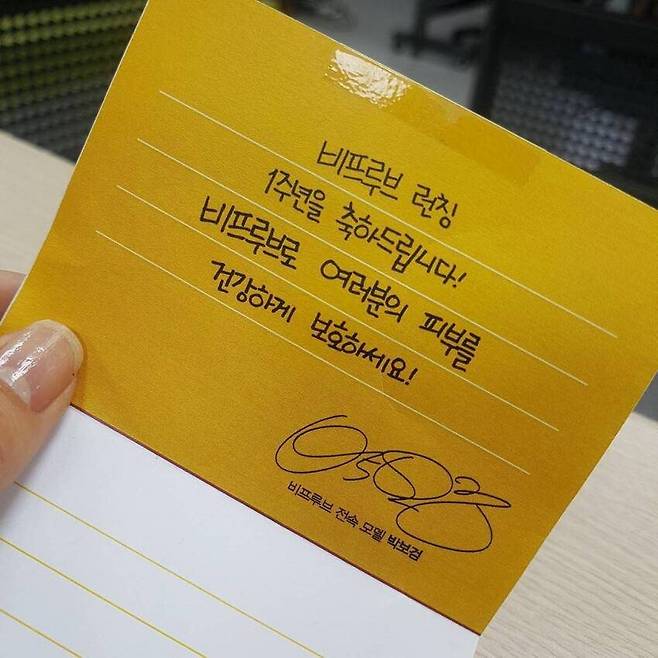 비프루브 런칭
1주년을 축하드립니다!
비프루브로 여러분의 피부를
건강하게 보호하세요!
비프루브 전속 모델 박보검